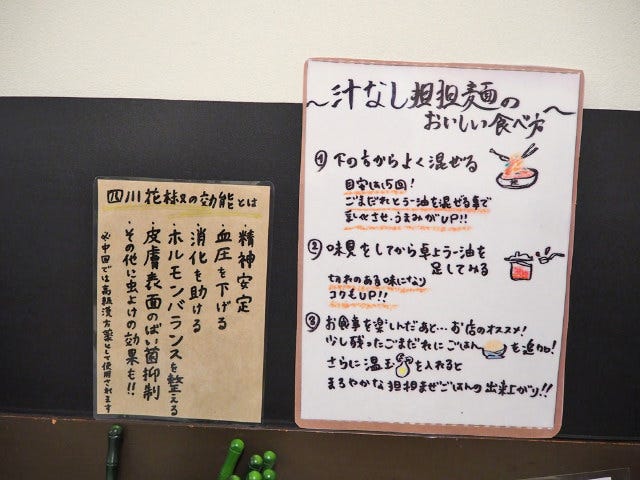 四川花椒の効能とは
・精神安定
・血圧を下げる
・消化を助ける
・ホルモンバランスを整える
・皮膚表面のばい菌抑制
・その他に虫よけの効果も!!
※中国では高級漢方薬として使用されてます
～汁なし担担麺の
おいしい食べ方～
① 下の方からよく混ぜる
目安は15回!
ごまだれとラー油を混ぜる事で
乳化させ、うまみがUP!!
② 味見をしてから卓上ラー油を
足してみる
切れのある味になり
コクもUP!!
③ お食事を楽しんだあと…お店のオススメ!
少し残ったごまだれにごはんを追加!
さらに温玉を入れると
まろやかな担担まぜごはんの出来上がり!!